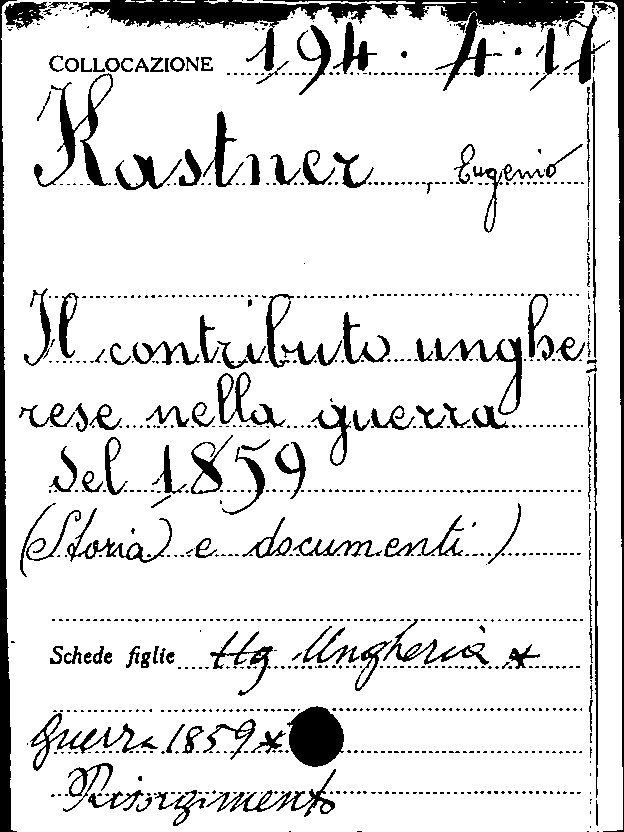 COLLOCAZIONE 194. 4. 17
Kastner, Eugenio
Il contributo unghe
rese nella guerra
del 1859
(Storia e documenti)
Schede figlie Ung Ungheria *
Guerra 1859 *
Risorgimento